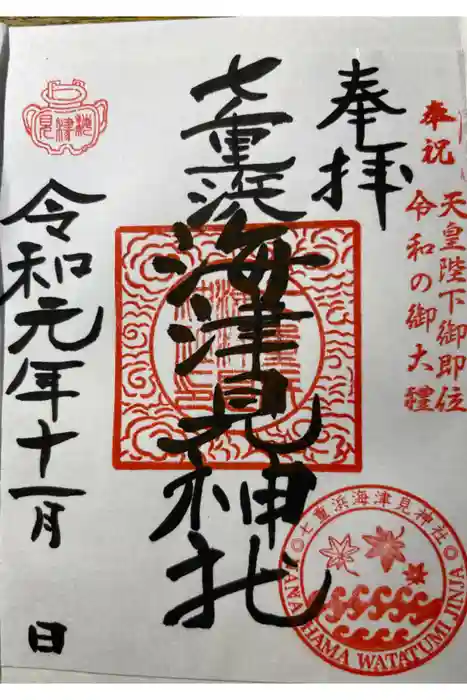 奉祝
天皇陛下御即位
令和の御大礼
奉拝
七重浜海津見神社
令和元年十一月 日
海津見
七重浜海津見神社
NANAEHAMA WATATUMI JINJA